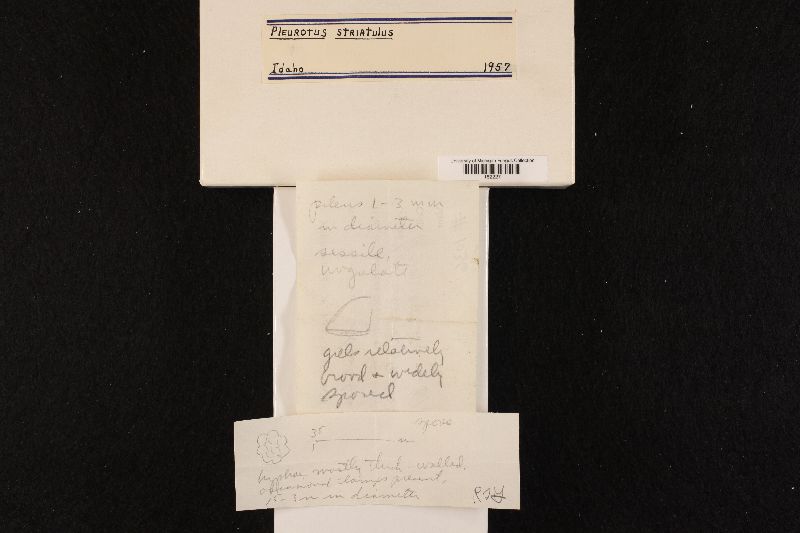 PLEUROTUS STRIATULUS
Idaho 1957
University of Michigan Fungus Collection
pileus 1-3 mm
in diameter
sessile,
gills relatively
broad & widely
spaced
spore
35
1
hyphae mostly thick-walled,
clamps present,
in diameter